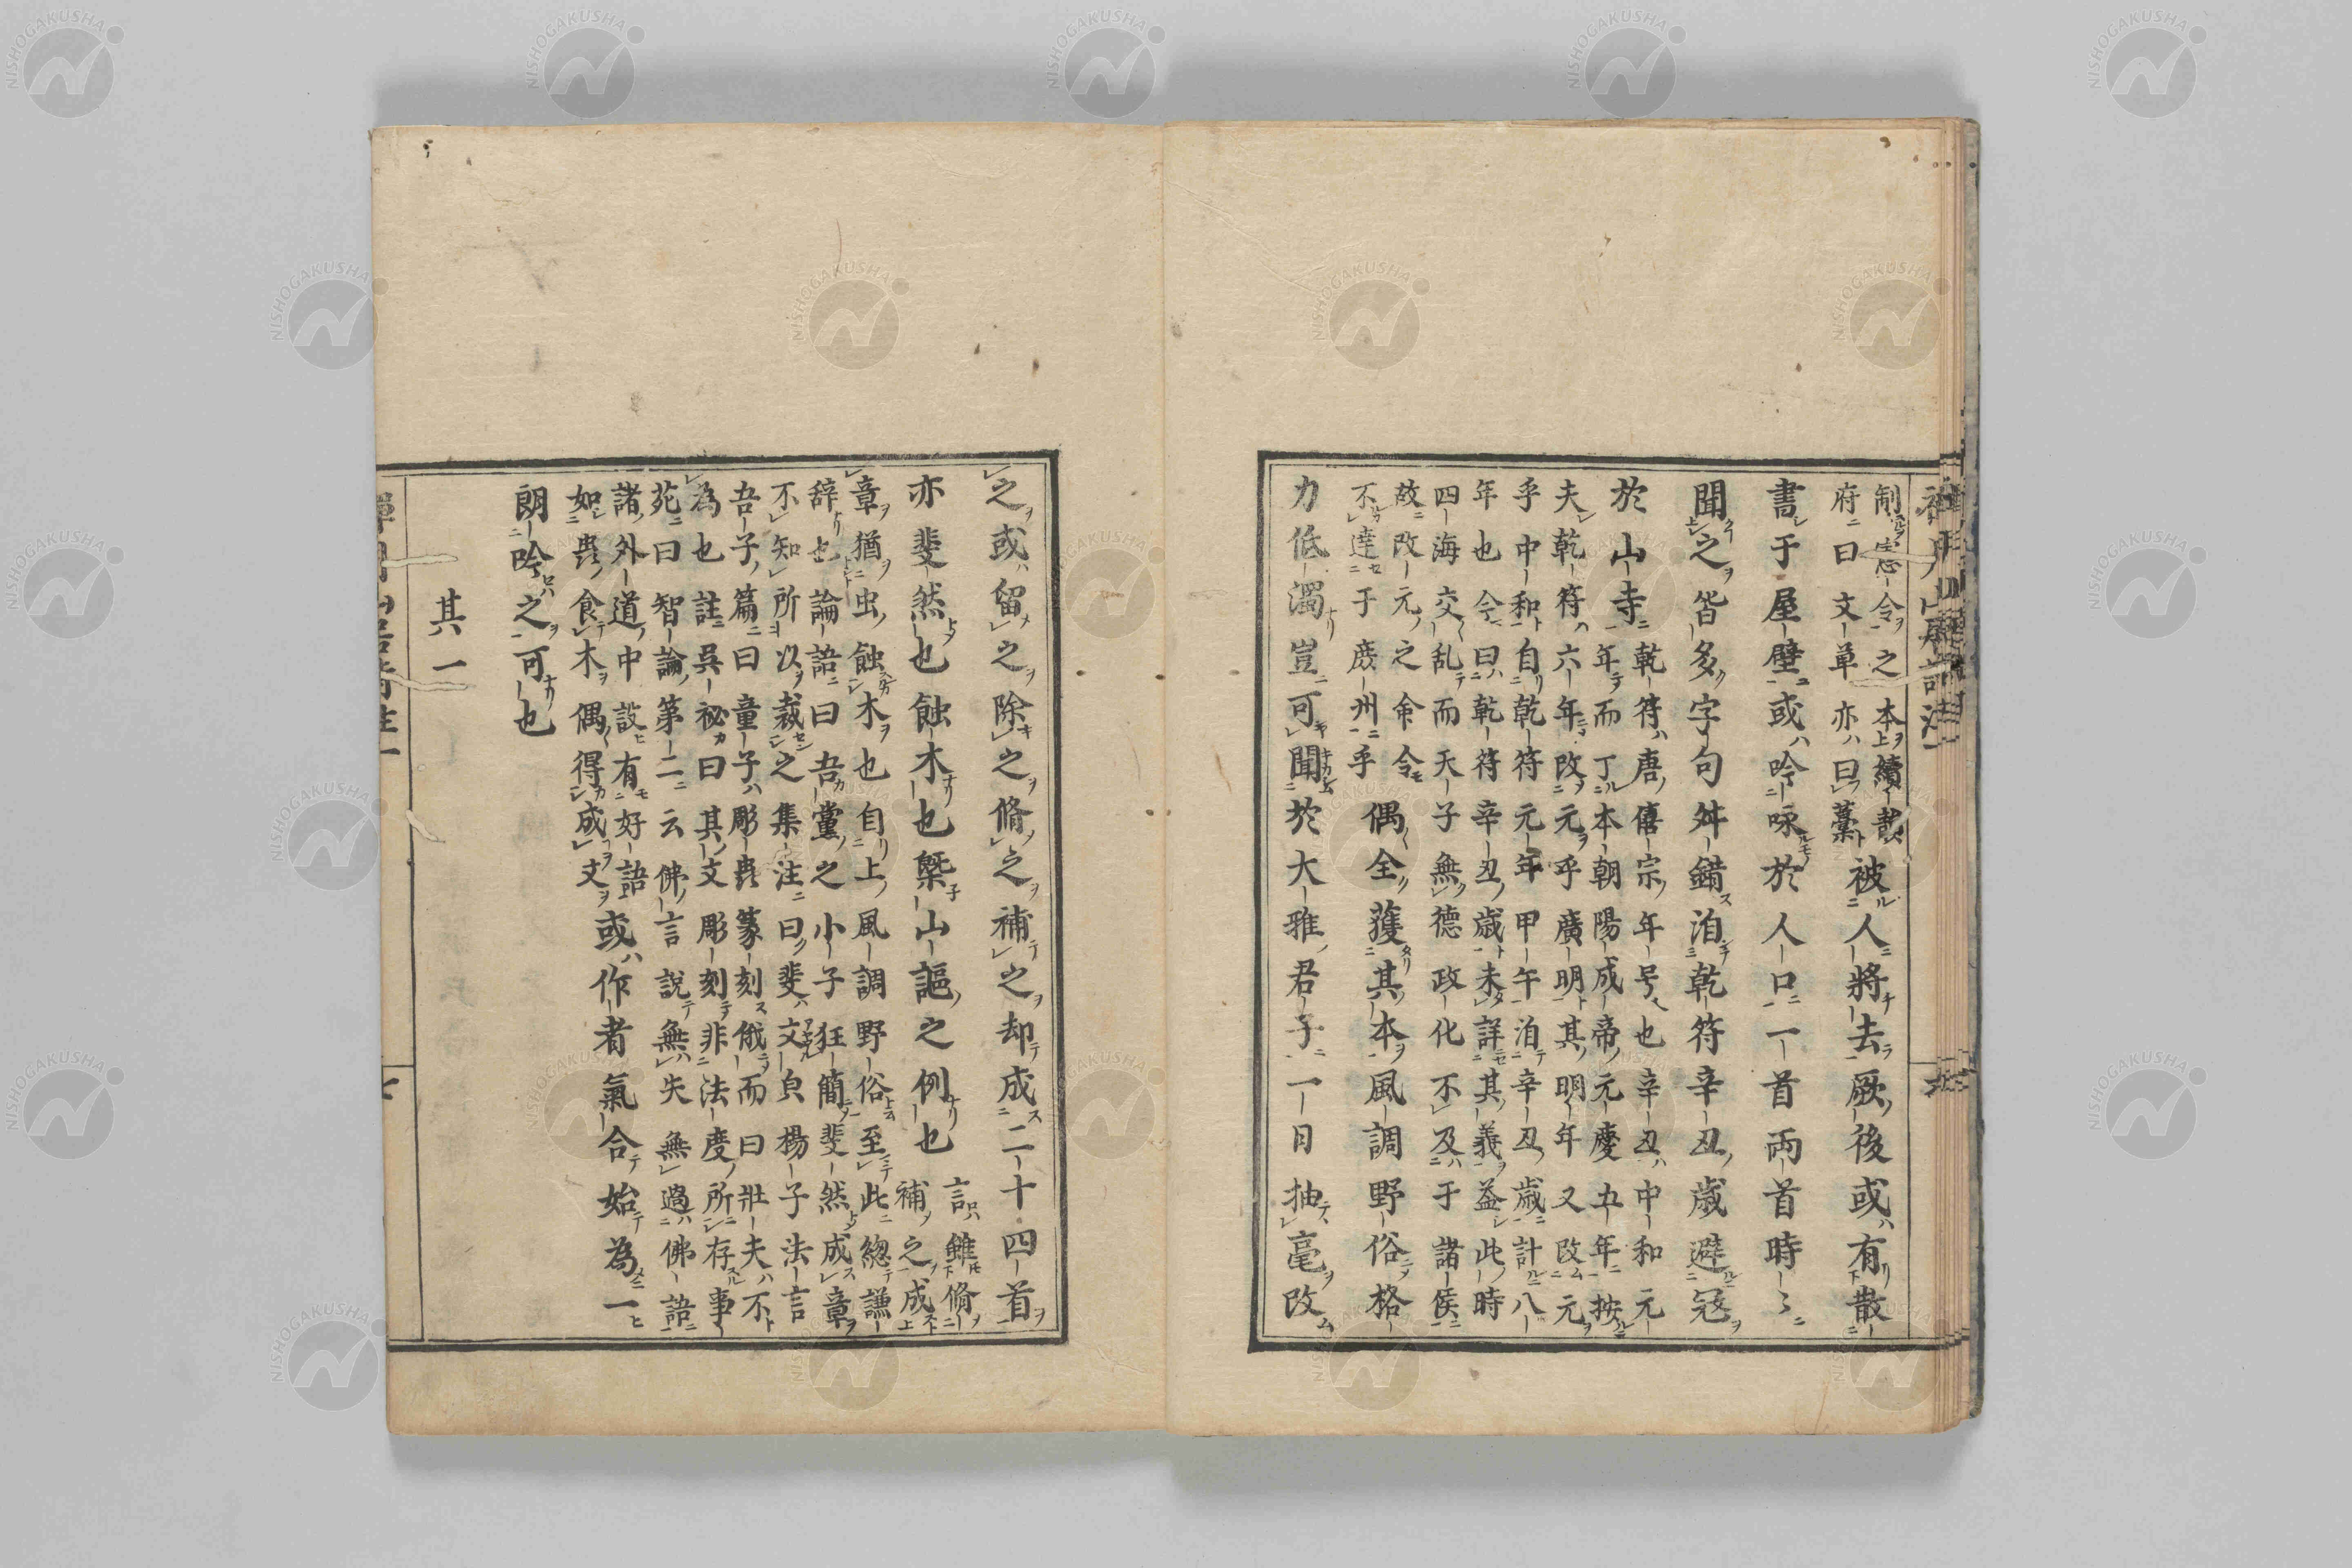 府曰文草亦曰藁
被人將去厥後或有散
書于屋壁或吟咏於人口一首兩首時〻
聞之皆多字句舛錯洎乾符辛丑歲避冦
於山寺
乾符唐僖宗年号也辛丑中和元
年而丁本朝陽成帝元慶五年按
夫乾符六年改元乎廣明其明年又改元
乎中和自乾符元年甲午洎辛丑歲計八
年也今曰乾符辛丑歲未詳其義益此時
四海交乱而天子無德政化不及于諸侯
故改元之命令
不達于廣州乎
偶全獲其本風調野俗格
力低濁豈可聞於大雅君子一日抽毫改
之或留之除之脩之補之却成二十四首
亦斐然也蝕木也槩山謳之例也
言雖脩
補之成
章猶虫蝕木也自上風調野俗至此總謙
辞也論語曰吾黨之小子狂簡斐然成章
不知所以裁之集注曰斐文皃楊子法言
吾子篇曰童子彫蟲篆刻俄而曰壯夫不
為也註吳祕曰其文彫刻非法度所存事
苑曰智論第二云佛言說無失無過佛語
諸外道中設有好語
如蟲食木偶得成文
或作者氣合始為一
朗吟之可也
其一